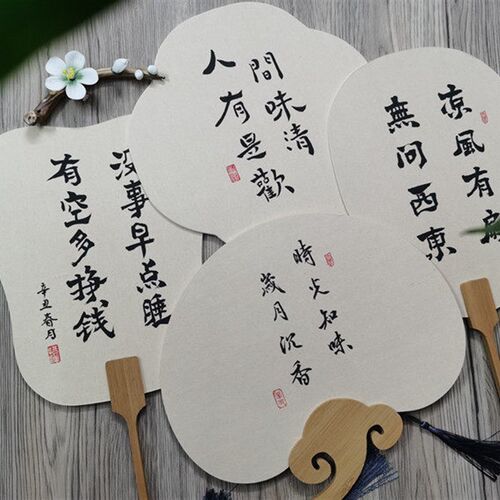 人間
有味
是清
歡
没事早点睡
有空多挣钱
辛丑春月
凉風有
無问西東
時光知味
歲月沉香